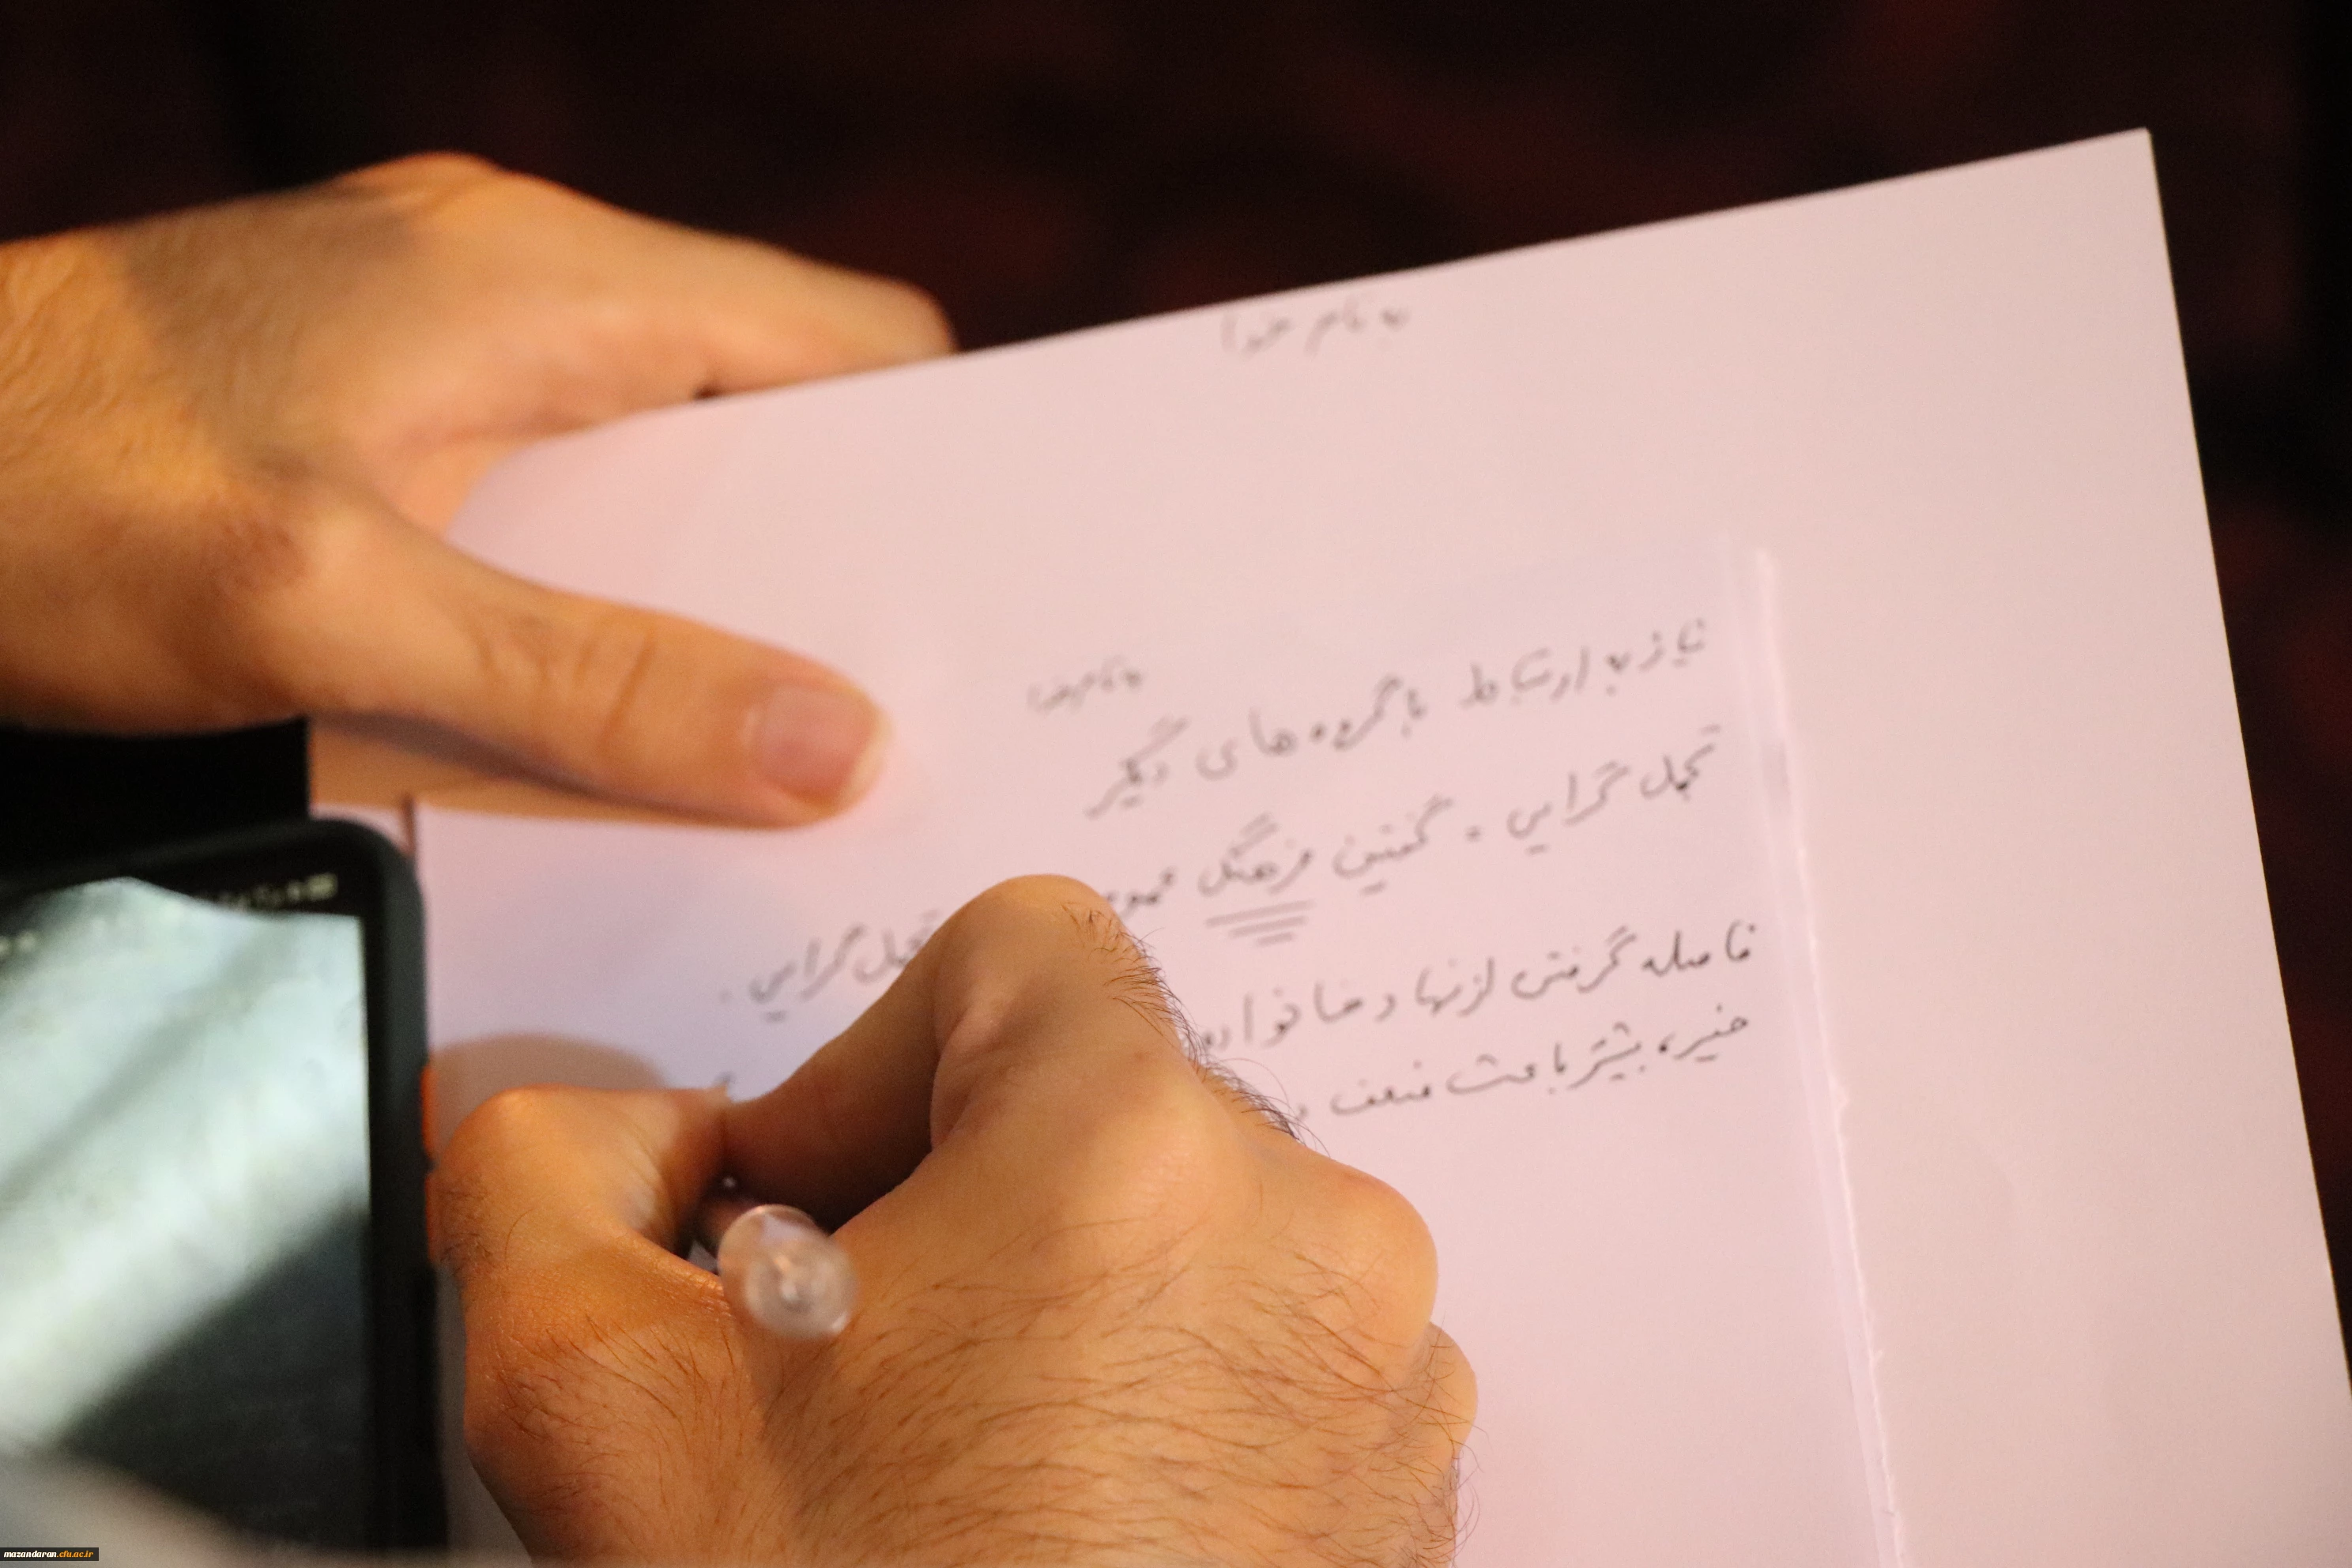 به نام خدا
به نام خدا
نیاز به ارتباط با گروه های دیگر
تجمل گرایی . گفتین فرهنگ تجمل گرایی .
فاصله گرفتن از نهاد خانواده
خیر، بیشتر باعث ضعف
mazandaran.cfu.ac.ir